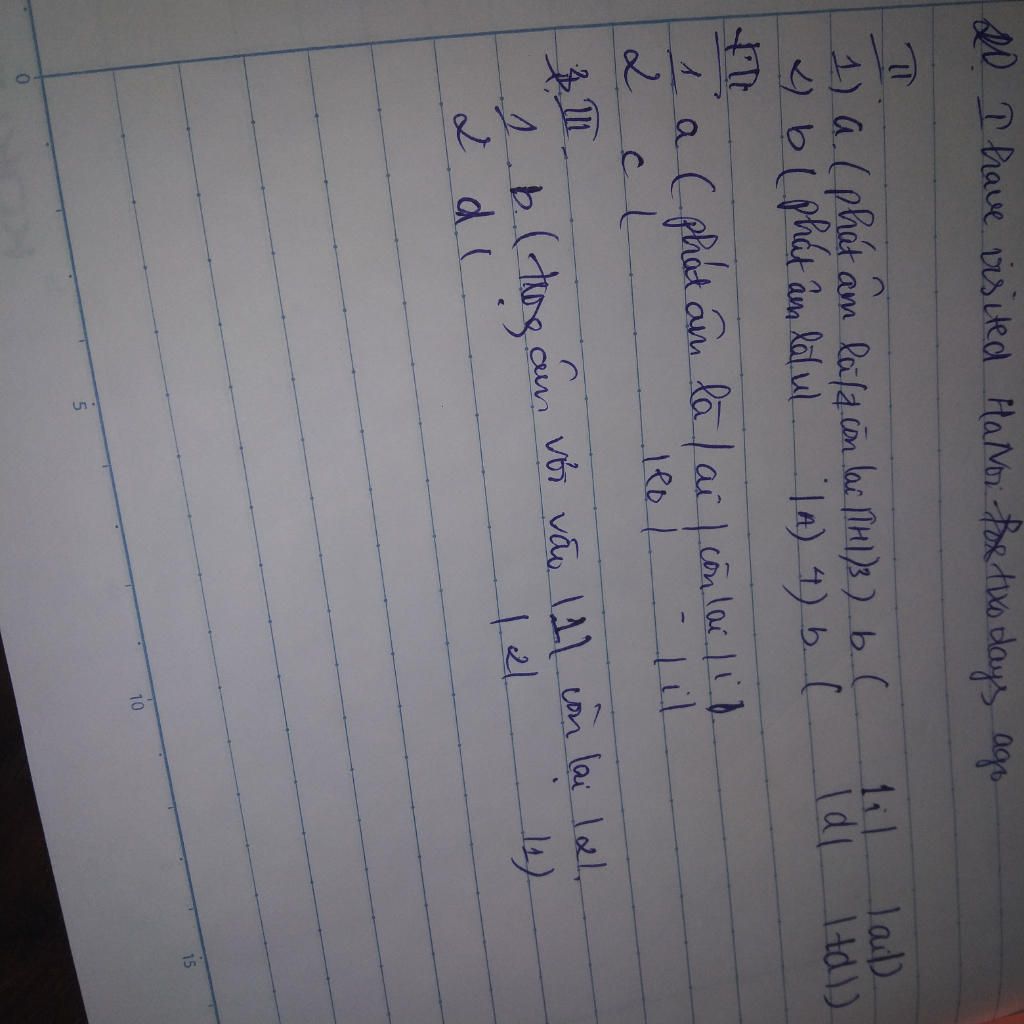 20. I have visited HaNoi two days ago
II
1) a. (phát âm là /z còn lại |TH|) 3) b ( |i| |ai|)
2) b ( phát âm là |u| |A|) 4) b ( |d| |td|)
II
1 a ( phát âm là |ai| còn lại |i|)
2 c ( |eo| - |i|
III.
1 b. (trọng âm rơi vào |1| còn lại |2|.
2 d ( |2| |1|)
0
5
10
15